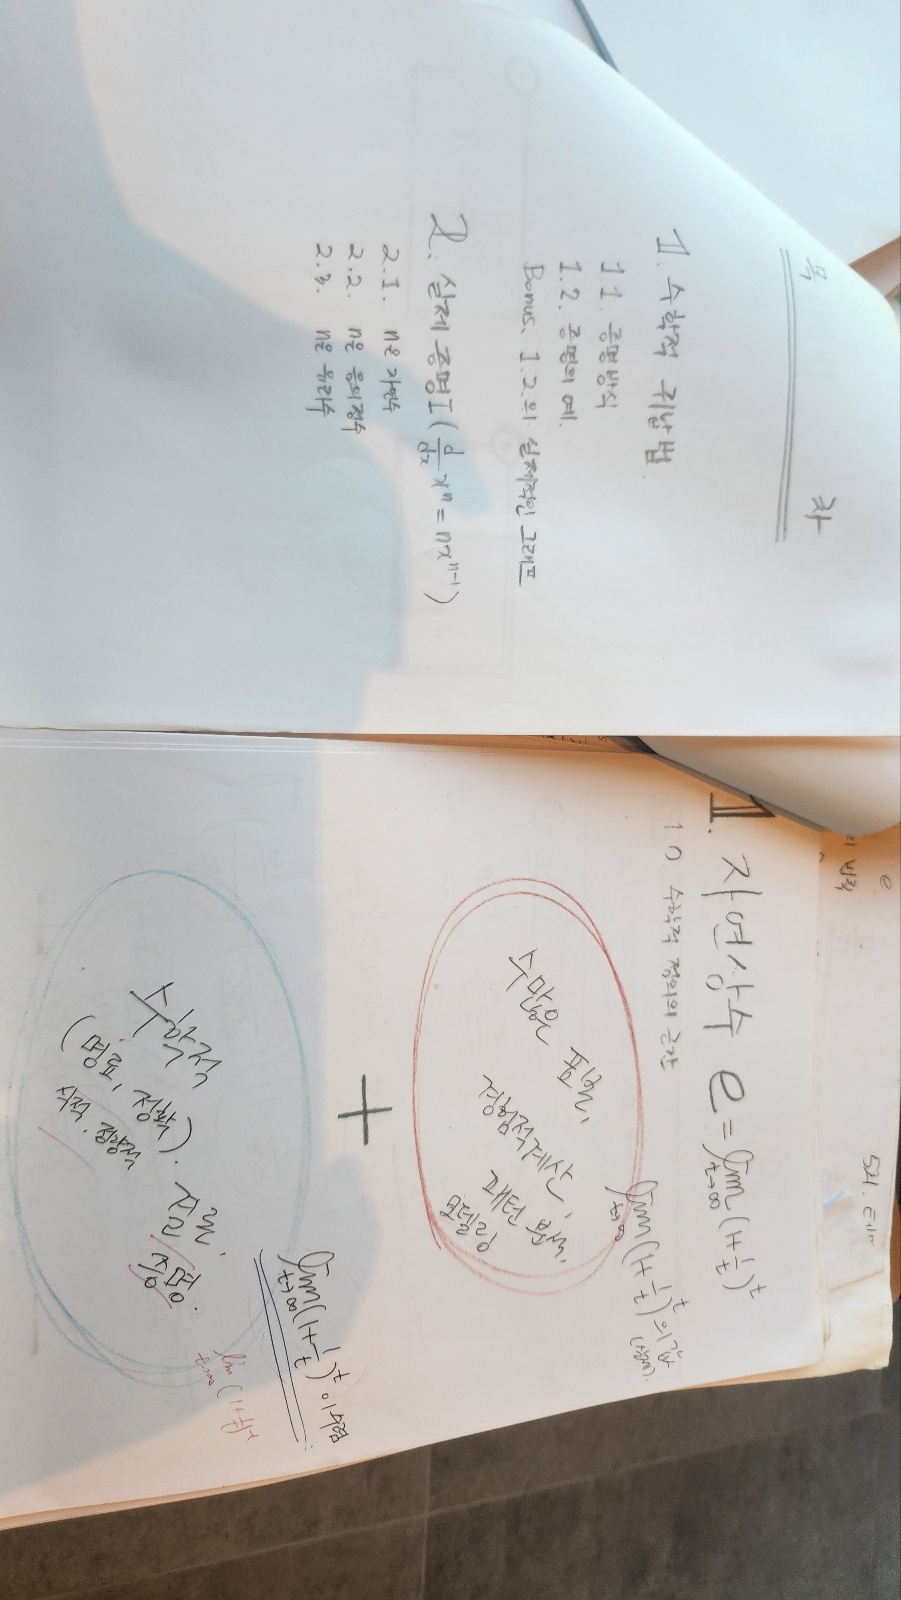 목 차
1. 수학적 귀납법.
1.1. 증명방식
1.2. 증명의 예.
Bonus. 1.2.의 실제적인 그래프
2. 실제 증명I (d/dx xⁿ = nxⁿ⁻¹)
2.1. n은 자연수
2.2. n은 음의정수
2.3. n은 유리수
e
법칙
1. 자연상수 e = lim t→∞ (1+1/t)^t
1.0 수학적 정의의 근간
lim t→∞ (1+1/t)^t 의 값
(실제).
수많은 표본,
경험적계산,
패턴 분석,
모델링
+
lim t→∞ (1+1/t)^t 이 수렴
lim t→∞ (1+1/t)^t
수학적
(명료, 정확).
식적. 정량적
결론,
증명.